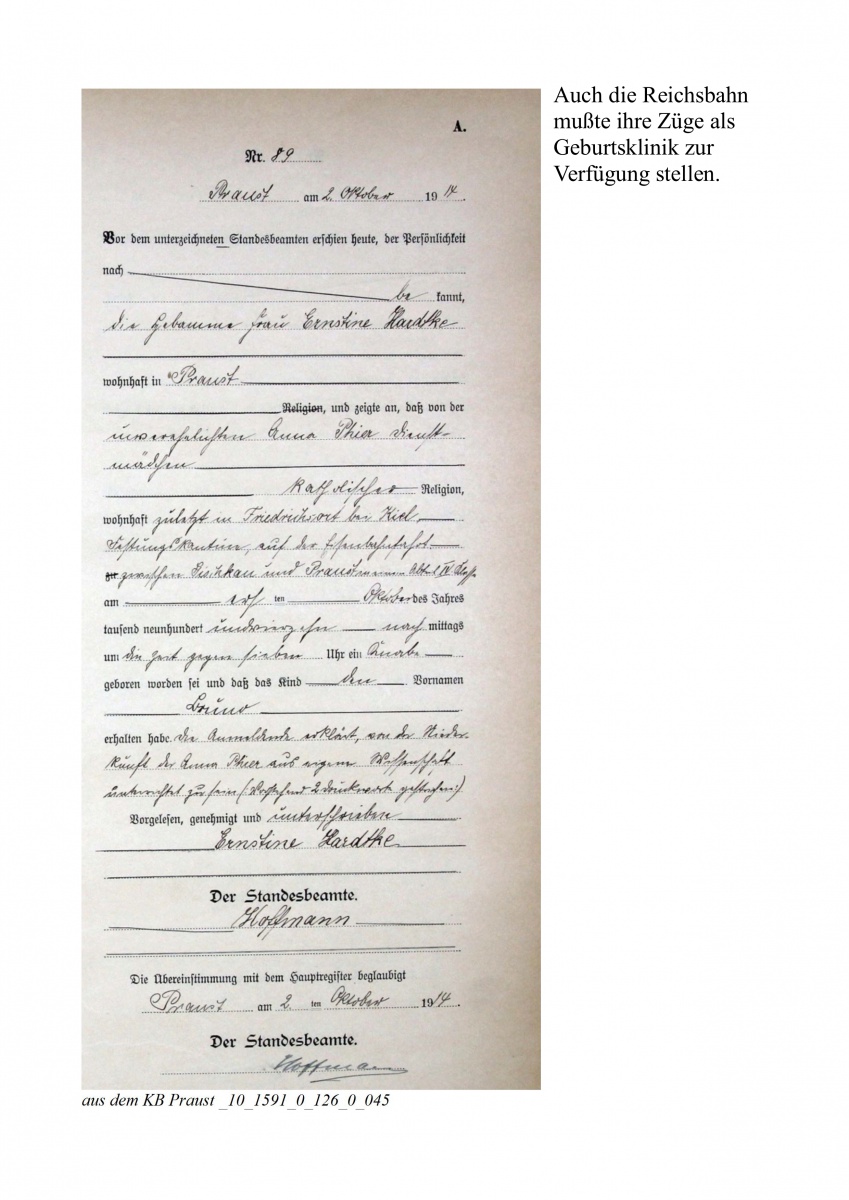 Auch die Reichsbahn
mußte ihre Züge als
Geburtsklinik zur
Verfügung stellen.
A.
Nr. 89
Praust am 2. Oktober 1914.
Vor dem unterzeichneten Standesbeamten erschien heute, der Persönlichkeit
nach
be kannt,
die Hebamme Frau Ernstine Hardtke
wohnhaft in Praust
Religion, und zeigte an, daß von der
unverehelichten Anna Thier Dienst-
mädchen
katholischer Religion,
wohnhaft zuletzt in Friedrichsort bei Kiel,
Festungskantine, auf der Eisenbahnfahrt
zwischen und Praust Abteil IV Klasse
am ersten Oktober des Jahres
tausend neunhundert undvierzehn nach mittags
um die Zeit gegen sieben Uhr ein Knabe
geboren worden sei und daß das Kind den Vornamen
Bruno
erhalten habe. Die Anmeldende erklärt, von der Nieder-
kunft der Anna Thier aus eigener Wissenschaft
unterrichtet zu sein (Vorstehend 2 Druckworte gestrichen)
Vorgelesen, genehmigt und unterschrieben
Ernstine Hardtke
Der Standesbeamte.
Hoffmann
Die Übereinstimmung mit dem Hauptregister beglaubigt
Praust am 2. ten Oktober 1914.
Der Standesbeamte.
Hoffmann
aus dem KB Praust _10_1591_0_126_0_045